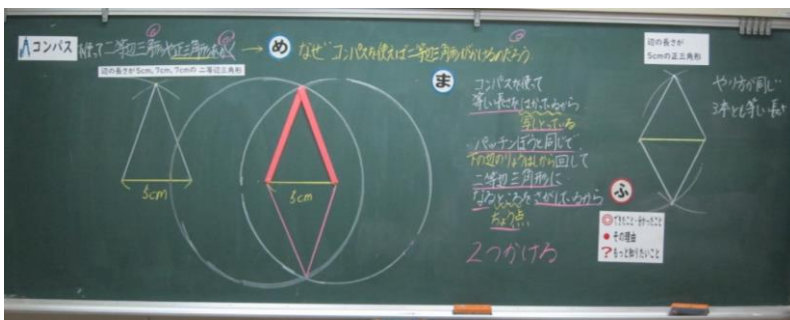 コンパス を使って二等辺三角形や正三角形をかく → め なぜコンパスを使えば二等辺三角形がかけるのだろう。
辺の長さが5cm, 7cm, 7cmの 二等辺三角形
5cm
5cm
ま
コンパスを使って
等しい長さをはかっているから
写しとっている
パッチンぼうと同じで
下の辺のりょうはしから回して
二等辺三角形に
なるところをさがしているから
ちょう点
2つかける
辺の長さが
5cmの正三角形
やり方が同じ
3本とも等しい長さ
ふ
◎できたこと・分かったこと
● その理由
? もっと知りたいこと